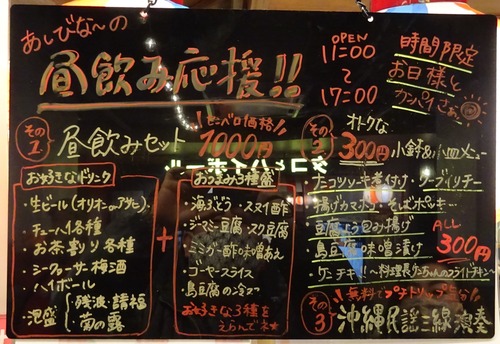 あしびなーの
昼飲み応援!!
OPEN
11:00
〜
17:00
時間限定
お日様と
カンパイさぁ
その1
昼飲みセット
せんべろ価格
1000円
お好きなドリンク
・生ビール(オリオンorアサヒ)
・チューハイ各種
・お茶割り各種
・シークヮーサー梅酒
・ハイボール
・泡盛
残波・請福
菊の露
+
おつまみ3種盛
・海ぶどう・スヌイ酢
・ジーマミ豆腐・スク豆腐
・ミミガー酢味噌あえ
・ゴーヤースライス
・島豆腐の冷奴
お好きな3種を
えらんでネ★
その2
オトクな
300円
小鉢&小皿メニュー
・ナンコツソーキ煮付け・クーブイリチー
・揚げカマボコ
・豆腐よう包み揚げ
・島豆腐味噌漬け
ALL
300円
・ケンチキ!〜料理長ケンちゃんのフライドチキン〜
その3
無料でプチトリップ気分
沖縄民謡三線演奏